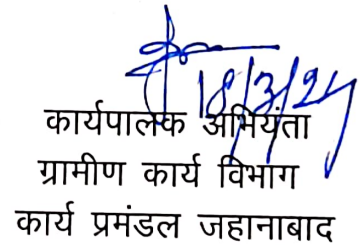 18/3/24
कार्यपालक अभियंता
ग्रामीण कार्य विभाग
कार्य प्रमंडल जहानाबाद